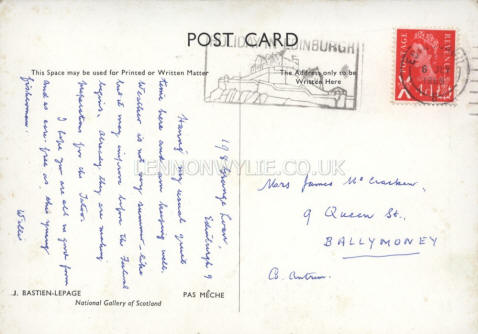 POST CARD
HOLIDAY IN EDINBURGH
This Space may be used for Printed or Written Matter
The Address only to be
Written Here
POSTAGE
REVENUE
LENNONWYLIE.CO.UK
198 Grange Loan,
Edinburgh 9
Having my usual quiet
time here and am keeping well.
Weather is not very summer-like
but it may improve before the Festival
begins. Already they are making
preparations for the Tattoo.
I hope you are all in good form
and as care-free as this young
fisherman.
Willie
Mrs James McCracken,
9 Queen St.,
BALLYMONEY
Co. Antrim.
J. BASTIEN-LEPAGE
PAS MÊCHE
National Gallery of Scotland